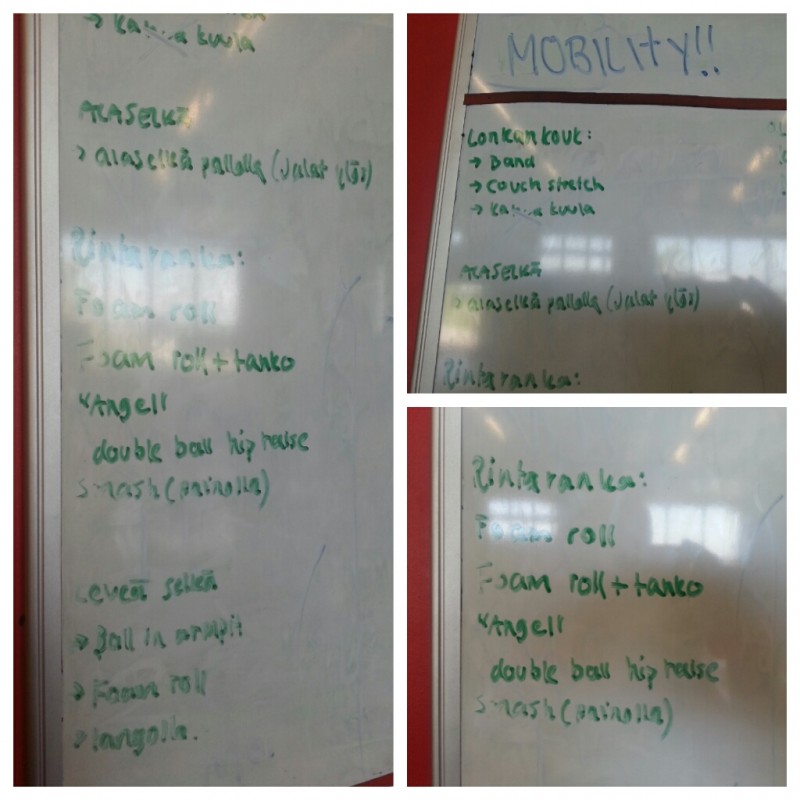 → Kahvakuula
ALASELKÄ
→ alaselkä pallolla (Jalat ylös)
Rintaranka:
Foam roll
Foam roll + tanko
double ball hip raise
Smash (painolla)
Leveä selkä
→ Ball in armpit
→ Foam roll
→ Tangolla.
MOBILITY!!
Lonkankouk:
→ Band
→ Couch stretch
→ Kahvakuula
ALASELKÄ
→ alaselkä pallolla (Jalat ylös)
Rintaranka:
Rintaranka:
Foam roll
Foam roll + tanko
double ball hip raise
Smash (painolla)